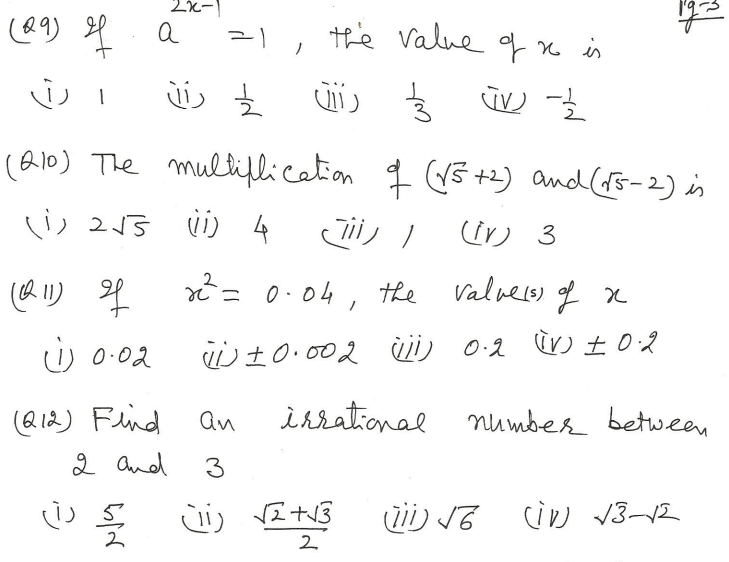 Pg-3
(Q9) If a^(2x-1) = 1, the value of x is
(i) 1 (ii) 1/2 (iii) 1/3 (iv) -1/2
(Q10) The multiplication of (√5+2) and (√5-2) is
(i) 2√5 (ii) 4 (iii) 1 (iv) 3
(Q11) If x² = 0.04, the value(s) of x
(i) 0.02 (ii) ±0.002 (iii) 0.2 (iv) ±0.2
(Q12) Find an irrational number between
2 and 3
(i) 5/2 (ii) (√2+√3)/2 (iii) √6 (iv) √3-√2